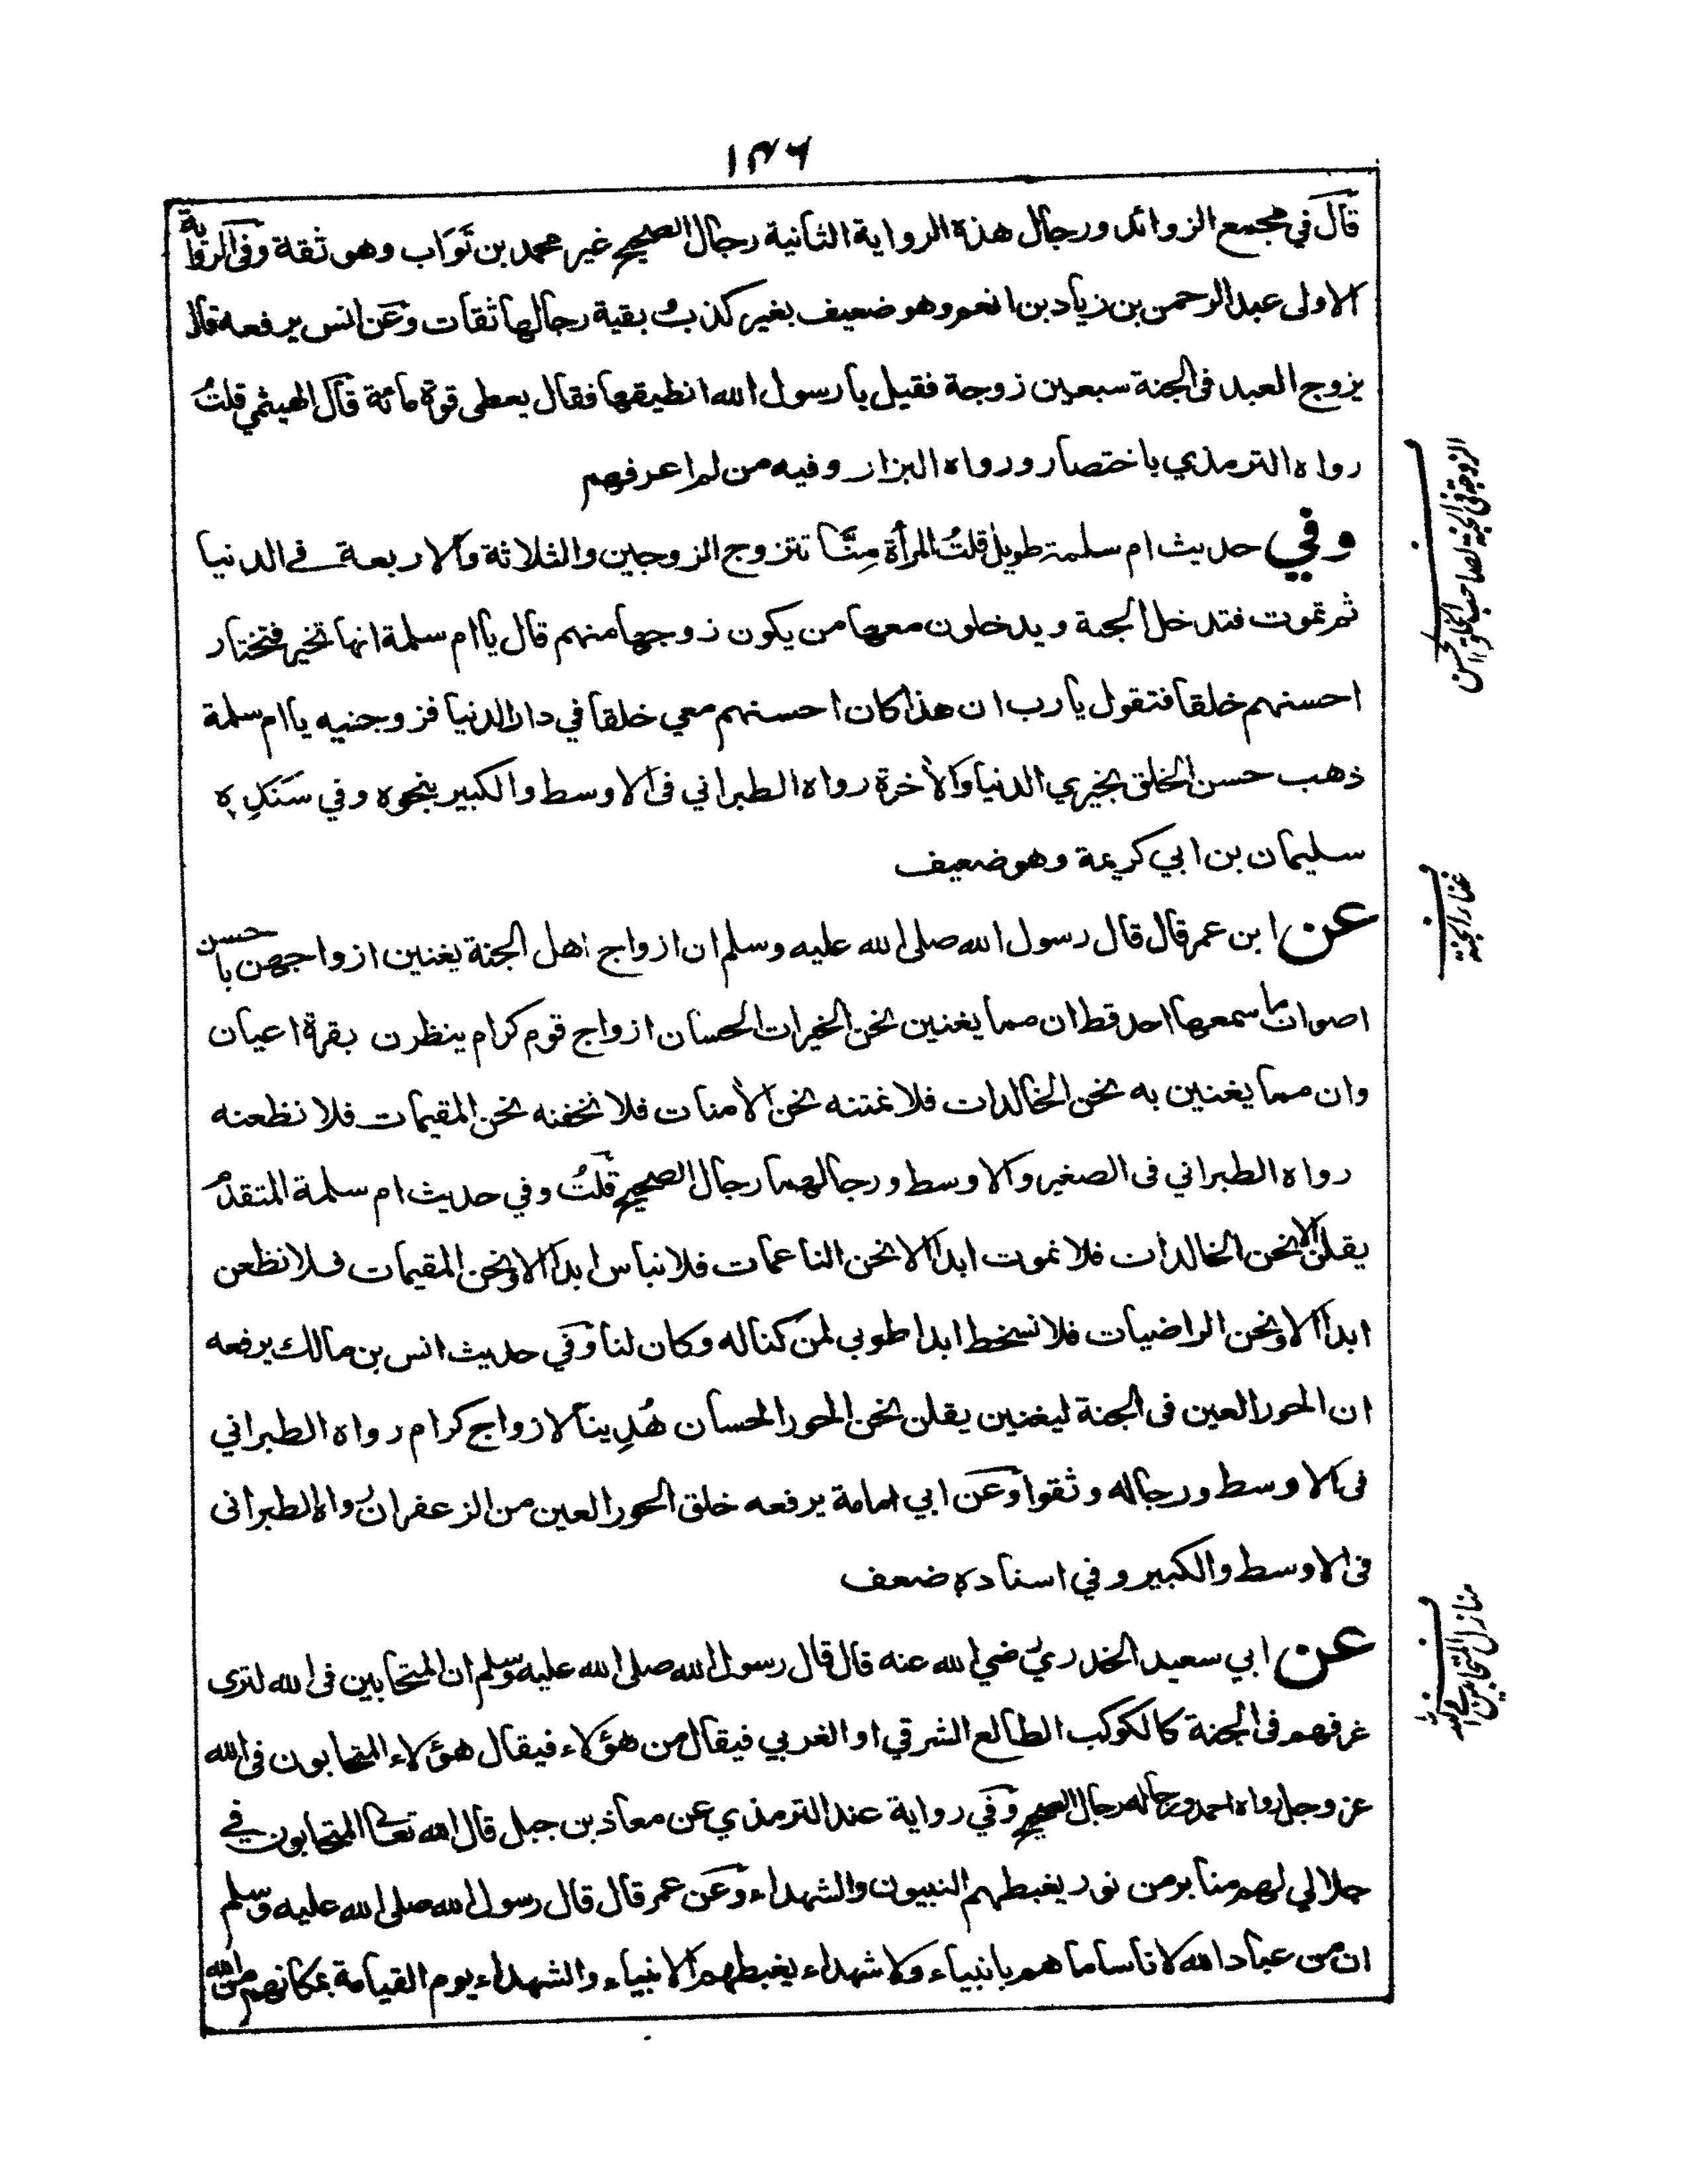 ١٣٦
قال في مجمع الزوائد ورجال هذه الرواية الثانية رجال الصحيح غير محمد بن ثواب وهو ثقة وفى الرواية
الاولى عبد الرحمن بن زياد بن انعم وهو ضعيف بغير كذب بقية رجالها ثقات وعن انس يرفعه قال
يزوج العبد فى الجنة سبعين زوجة فقيل يا رسول الله انطيقها فقال يعطى قوة مائة قال الهيثمي قلتُ
رواه الترمذي باختصار ورواه البزار وفيه من لم اعرفهم
وفي حديث ام سلمة طويل قلتُ المرأة مِنَّا تتزوج الزوجين والثلاثة والاربعة في الدنيا
ثم تموت فتدخل الجنة ويدخلون معها من يكون زوجها منهم قال يا ام سلمة انها تخير فتختار
احسنهم خلقا فتقول يا رب ان هذا كان احسنهم معي خلقا في دار الدنيا فزوجنيه يا ام سلمة
ذهب حسن الخلق بخيري الدنيا والأخرة رواه الطبراني فى الاوسط والكبير بنحوه وفي سَنَدِه
سليمان بن ابي كريمة وهو ضعيف
عن ابن عمر قال قال رسول الله صلى الله عليه وسلم ان ازواج اهل الجنة يغنين ازواجهن باحسن
اصوات ما سمعها احد قط ان مما يغنين نحن الخيرات الحسان ازواج قوم كرام ينظرن بقرة اعيان
وان مما يغنين به نحن الخالدات فلا نمتنه نحن الأمنات فلا نخفنه نحن المقيمات فلا نظعنه
رواه الطبراني فى الصغير والاوسط ورجالهما رجال الصحيح قلتُ وفي حديث ام سلمة المتقدم
يقلن الا نحن الخالدات فلا نموت ابدا الا نحن الناعمات فلا نباس ابدا الا ونحن المقيمات فلا نظعن
ابدا الا ونحن الراضيات فلا نسخط ابدا طوبى لمن كنا له وكان لنا وفي حديث انس بن مالك يرفعه
ان الحور العين فى الجنة ليغنين يقلن نحن الحور الحسان هُدِينا لازواج كرام رواه الطبراني
فى الاوسط ورجاله وثقوا وعن ابي امامة يرفعه خلق الحور العين من الزعفران رواه الطبرانى
فى الاوسط والكبير وفي اسناده ضعف
عن ابي سعيد الخدري رضي الله عنه قال قال رسول الله صلى الله عليه وسلم ان المتحابين فى الله لترى
غرفهم فى الجنة كالكوكب الطالع الشرقي او الغربي فيقال من هؤلاء فيقال هؤلاء المتحابون فى الله
عز وجل رواه احمد ورجاله رجال الصحيح وفي رواية عند الترمذي عن معاذ بن جبل قال الله تعالى المتحابون في
جلالي لهم منابر من نور يغبطهم النبيون والشهداء وعن عمر قال قال رسول الله صلى الله عليه وسلم
ان من عباد الله لاناسا ما هم بانبياء ولا شهداء يغبطهم الانبياء والشهداء يوم القيامة بمكانهم من الله
الزوجة فى الجنة لصاحب الخلق الحسن
غناء الجنة
منازل المتحابين في الله